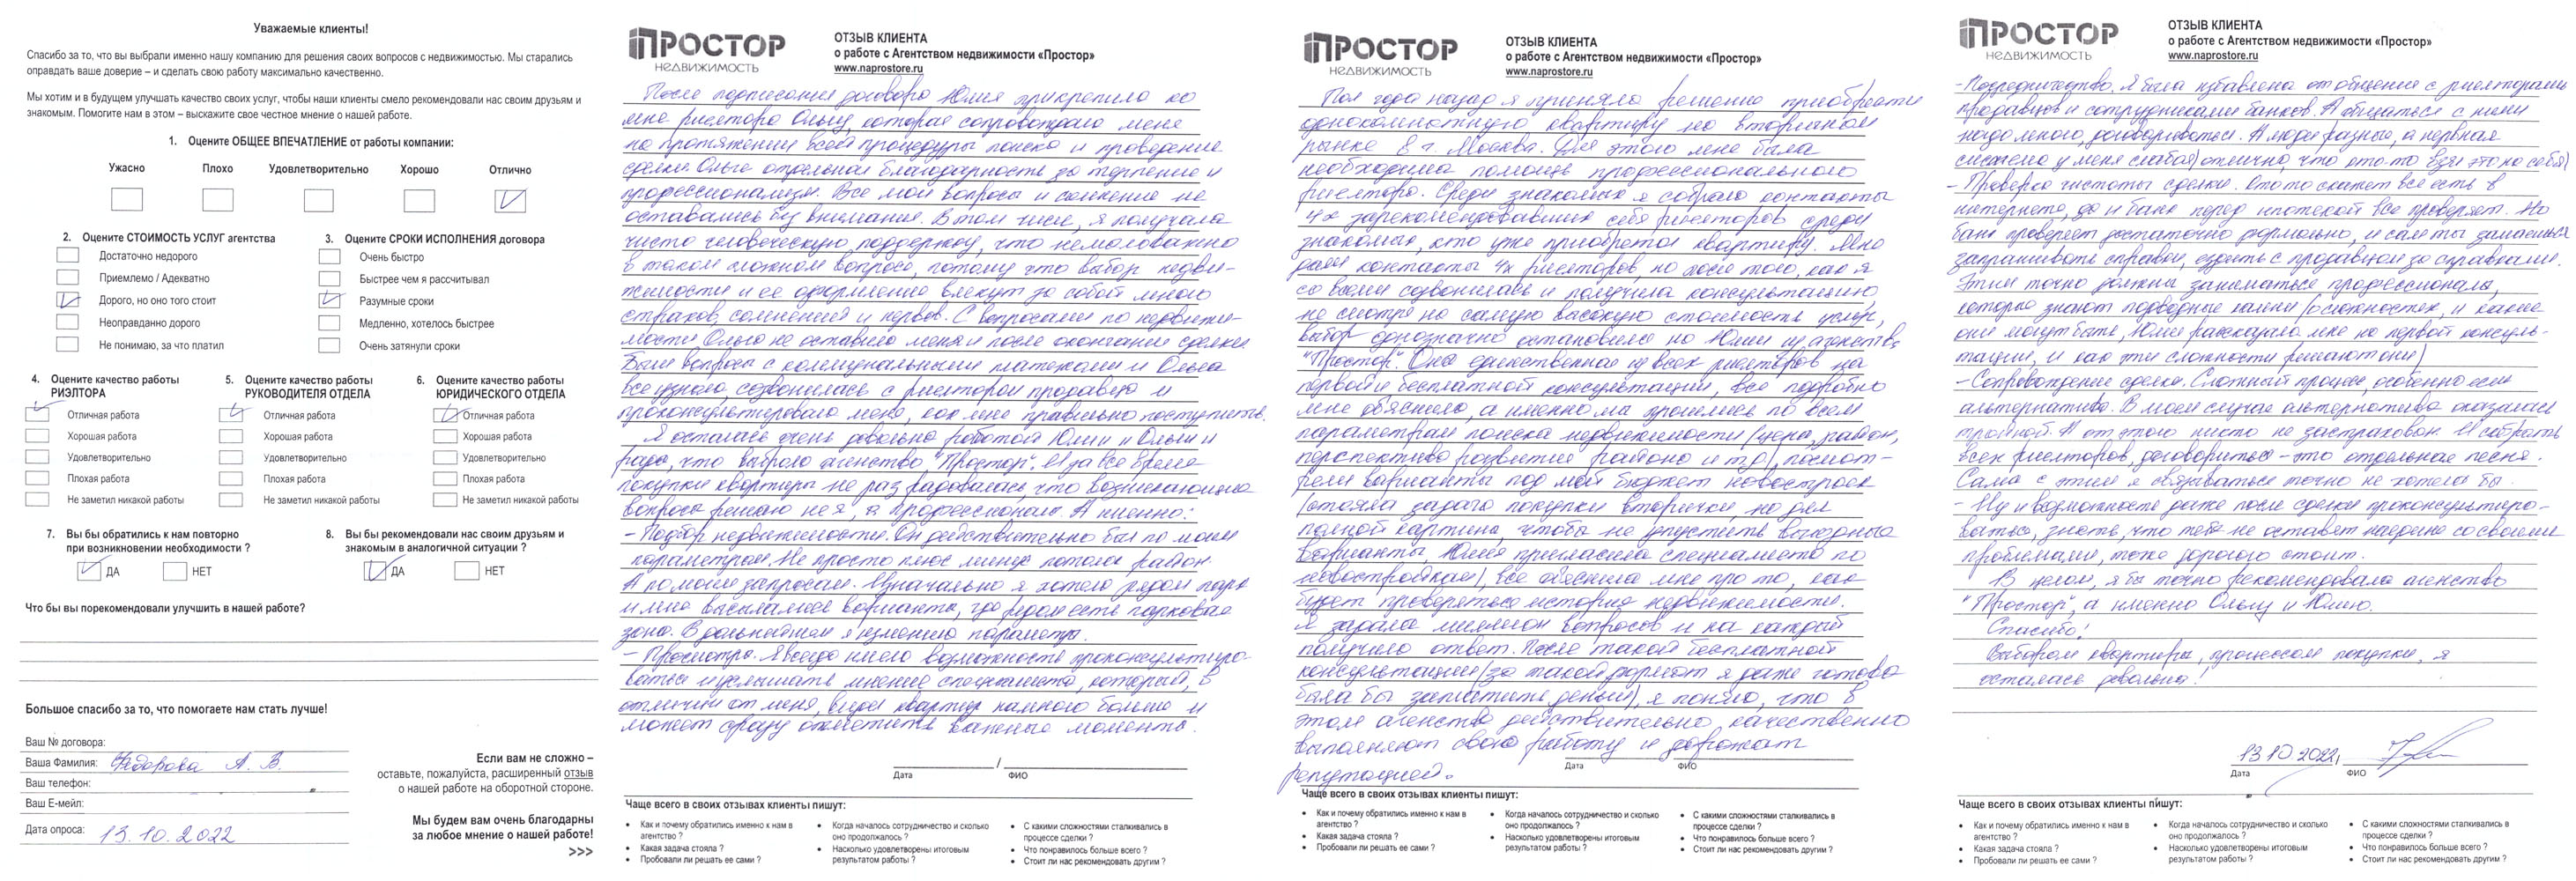 Уважаемые клиенты!
Спасибо за то, что вы выбрали именно нашу компанию для решения своих вопросов с недвижимостью. Мы старались
оправдать ваше доверие – и сделать свою работу максимально качественно.
Мы хотим и в будущем улучшать качество своих услуг, чтобы наши клиенты смело рекомендовали нас своим друзьям и
знакомым. Помогите нам в этом – выскажите свое честное мнение о нашей работе.
1. Оцените ОБЩЕЕ ВПЕЧАТЛЕНИЕ от работы компании:
Ужасно Плохо Удовлетворительно Хорошо Отлично
2. Оцените СТОИМОСТЬ УСЛУГ агентства
Достаточно недорого
Приемлемо / Адекватно
Дорого, но оно того стоит
Неоправданно дорого
Не понимаю, за что платил
3. Оцените СРОКИ ИСПОЛНЕНИЯ договора
Очень быстро
Быстрее чем я рассчитывал
Разумные сроки
Медленно, хотелось быстрее
Очень затянули сроки
4. Оцените качество работы
РИЭЛТОРА
Отличная работа
Хорошая работа
Удовлетворительно
Плохая работа
Не заметил никакой работы
5. Оцените качество работы
РУКОВОДИТЕЛЯ ОТДЕЛА
Отличная работа
Хорошая работа
Удовлетворительно
Плохая работа
Не заметил никакой работы
6. Оцените качество работы
ЮРИДИЧЕСКОГО ОТДЕЛА
Отличная работа
Хорошая работа
Удовлетворительно
Плохая работа
Не заметил никакой работы
7. Вы бы обратились к нам повторно
при возникновении необходимости ?
ДА НЕТ
8. Вы бы рекомендовали нас своим друзьям и
знакомым в аналогичной ситуации ?
ДА НЕТ
Что бы вы порекомендовали улучшить в нашей работе?
Большое спасибо за то, что помогаете нам стать лучше!
Ваш № договора:
Ваша Фамилия: Федорова А. В.
Ваш телефон:
Ваш Е-мейл:
Дата опроса: 13.10.2022
Если вам не сложно –
оставьте, пожалуйста, расширенный отзыв
о нашей работе на оборотной стороне.
Мы будем вам очень благодарны
за любое мнение о нашей работе!
>>>
ПРОСТОР
НЕДВИЖИМОСТЬ
ОТЗЫВ КЛИЕНТА
о работе с Агентством недвижимости «Простор»
www.naprostore.ru
После подписания договора Юлия прикрепила ко
мне риелтора Ольгу, которая сопровождала меня
на протяжении всей процедуры поиска и проведение
сделки. Ольге отдельная благодарность за терпение и
профессионализм. Все мои вопросы и сомнения не
оставались без внимания. В том числе, я получала
чисто человеческую поддержку, что немаловажно
в таком сложном вопросе, потому что выбор недви-
жимости и ее оформление влекут за собой много
страхов, сомнений и нервов. С вопросами по недвижи-
мости Ольга не оставила меня и после окончания сделки.
Были вопросы с коммунальными платежами и Ольга
все узнала, созвонилась с риелтором продавца и
проконсультировала меня, как мне правильно поступить.
Я осталась очень довольна работой Юлии и Ольги и
рада, что выбрала агенство "Простор". И за все время
покупки квартиры не раз радовалась, что возникающие
вопросы решаю не я, а профессионалы. А именно:
- Подбор недвижимости. Он действительно был по моим
параметрам. Не просто плюс минус потолок район.
А по моим запросам. Изначально я хотела рядом парк
и мне высылались варианты, где рядом есть парковая
зона. В дальнейшем я изменила параметры.
- Просмотры. Я всегда имела возможность проконсультиро-
ваться и услышать мнение специалиста, который, в
отличии от меня, видел квартир намного больше и
может сразу отметить важные моменты.
Дата / ФИО
Чаще всего в своих отзывах клиенты пишут:
• Как и почему обратились именно к нам в
агентство ?
• Какая задача стояла ?
• Пробовали ли решать ее сами ?
• Когда началось сотрудничество и сколько
оно продолжалось ?
• Насколько удовлетворены итоговым
результатом работы ?
• С какими сложностями сталкивались в
процессе сделки ?
• Что понравилось больше всего ?
• Стоит ли нас рекомендовать другим ?
ПРОСТОР
НЕДВИЖИМОСТЬ
ОТЗЫВ КЛИЕНТА
о работе с Агентством недвижимости «Простор»
www.naprostore.ru
Пол года назад я приняла решение приобрести
однокомнатную квартиру на вторичном
рынке в г. Москва. Для этого мне была
необходима помощь профессионального
риелтора. Среди знакомых я собрала контакты
4х зарекомендовавших себя риелторов среди
знакомых, кто уже приобретал квартиру. Мне
дали контакты 4х риелторов, но после того, как я
со всеми созвонилась и получила консультацию,
не смотря на самую высокую стоимость услуг,
выбор однозначно остановила на Юлии из агенства
"Простор". Она единственная из всех риелторов на
первой и бесплатной консультации, все подробно
мне объяснила, а именно мы прошлись по всем
параметрам поиска недвижимости (цена, район,
перспектива развития района и т.д), посмот-
рели варианты под мой бюджет новостроек
(стояла задача покупки вторички, но для
полной картины, чтобы не упустить выгодные
варианты, Юлия пригласила специалиста по
новостройкам), все объяснила мне про то, как
будет проверяться история недвижимости.
Я задала миллион вопросов и на каждый
получила ответ. После такой бесплатной
консультации (за такой формат я даже готова
была бы заплатить деньги), я поняла, что в
этом агенстве действительно качественно
выполняют свою работу и дорожат
репутацией.
Дата ФИО
Чаще всего в своих отзывах клиенты пишут:
• Как и почему обратились именно к нам в
агентство ?
• Какая задача стояла ?
• Пробовали ли решать ее сами ?
• Когда началось сотрудничество и сколько
оно продолжалось ?
• Насколько удовлетворены итоговым
результатом работы ?
• С какими сложностями сталкивались в
процессе сделки ?
• Что понравилось больше всего ?
• Стоит ли нас рекомендовать другим ?
ПРОСТОР
НЕДВИЖИМОСТЬ
ОТЗЫВ КЛИЕНТА
о работе с Агентством недвижимости «Простор»
www.naprostore.ru
- Посредничество. Я была избавлена от общения с риелторами
продавцов и сотрудниками банков. А общаться с ними
надо много, договариваться. А люди разные, а нервная
система у меня слабая) отлично, что кто-то взял это на себя)
- Проверка чистоты сделки. Кто то скажет все есть в
интернете, да и банк перед ипотекой все проверяет. Но
банк проверяет достаточно формально, и сам ты замаешься
запрашивать справки, ездить с продавцом за справками.
Этим точно должны заниматься профессионалы,
которые знают подводные камни (о сложностях, и какие
они могут быть, Юлия рассказала мне на первой консуль-
тации, и как эти сложности решают они)
- Сопровождение сделки. Сложный процесс, особенно если
альтернатива. В моем случае альтернатива оказалась
тройной. А от этого никто не застрахован. И собрать
всех риелторов, договориться - это отдельная песня.
Сама с этим я связываться точно не хотела бы.
- Ну и возможность даже после сделки проконсультиро-
ваться, знать, что тебя не оставят наедине со своими
проблемами, тоже дорогого стоит.
В целом, я бы точно рекомендовала агенство
"Простор", а именно Ольгу и Юлию.
Спасибо!
Выбором квартиры, процессом покупки, я
осталась довольна!
13.10.2022,
Дата ФИО
Чаще всего в своих отзывах клиенты пишут:
• Как и почему обратились именно к нам в
агентство ?
• Какая задача стояла ?
• Пробовали ли решать ее сами ?
• Когда началось сотрудничество и сколько
оно продолжалось ?
• Насколько удовлетворены итоговым
результатом работы ?
• С какими сложностями сталкивались в
процессе сделки ?
• Что понравилось больше всего ?
• Стоит ли нас рекомендовать другим ?